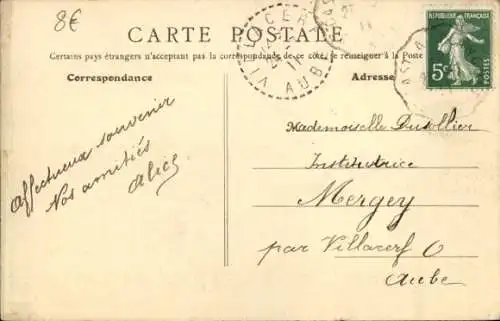 8€
CARTE POSTALE
Certains pays étrangers n'acceptant pas la correspondance de ce côté, se renseigner à la Poste
Correspondance
Adresse
RÉPUBLIQUE FRANÇAISE
5c
AUBE
Affectueux souvenir
Nos amitiés
Alice
Mademoiselle Dusollier
Institutrice
Mergey
par Villacerf
Aube